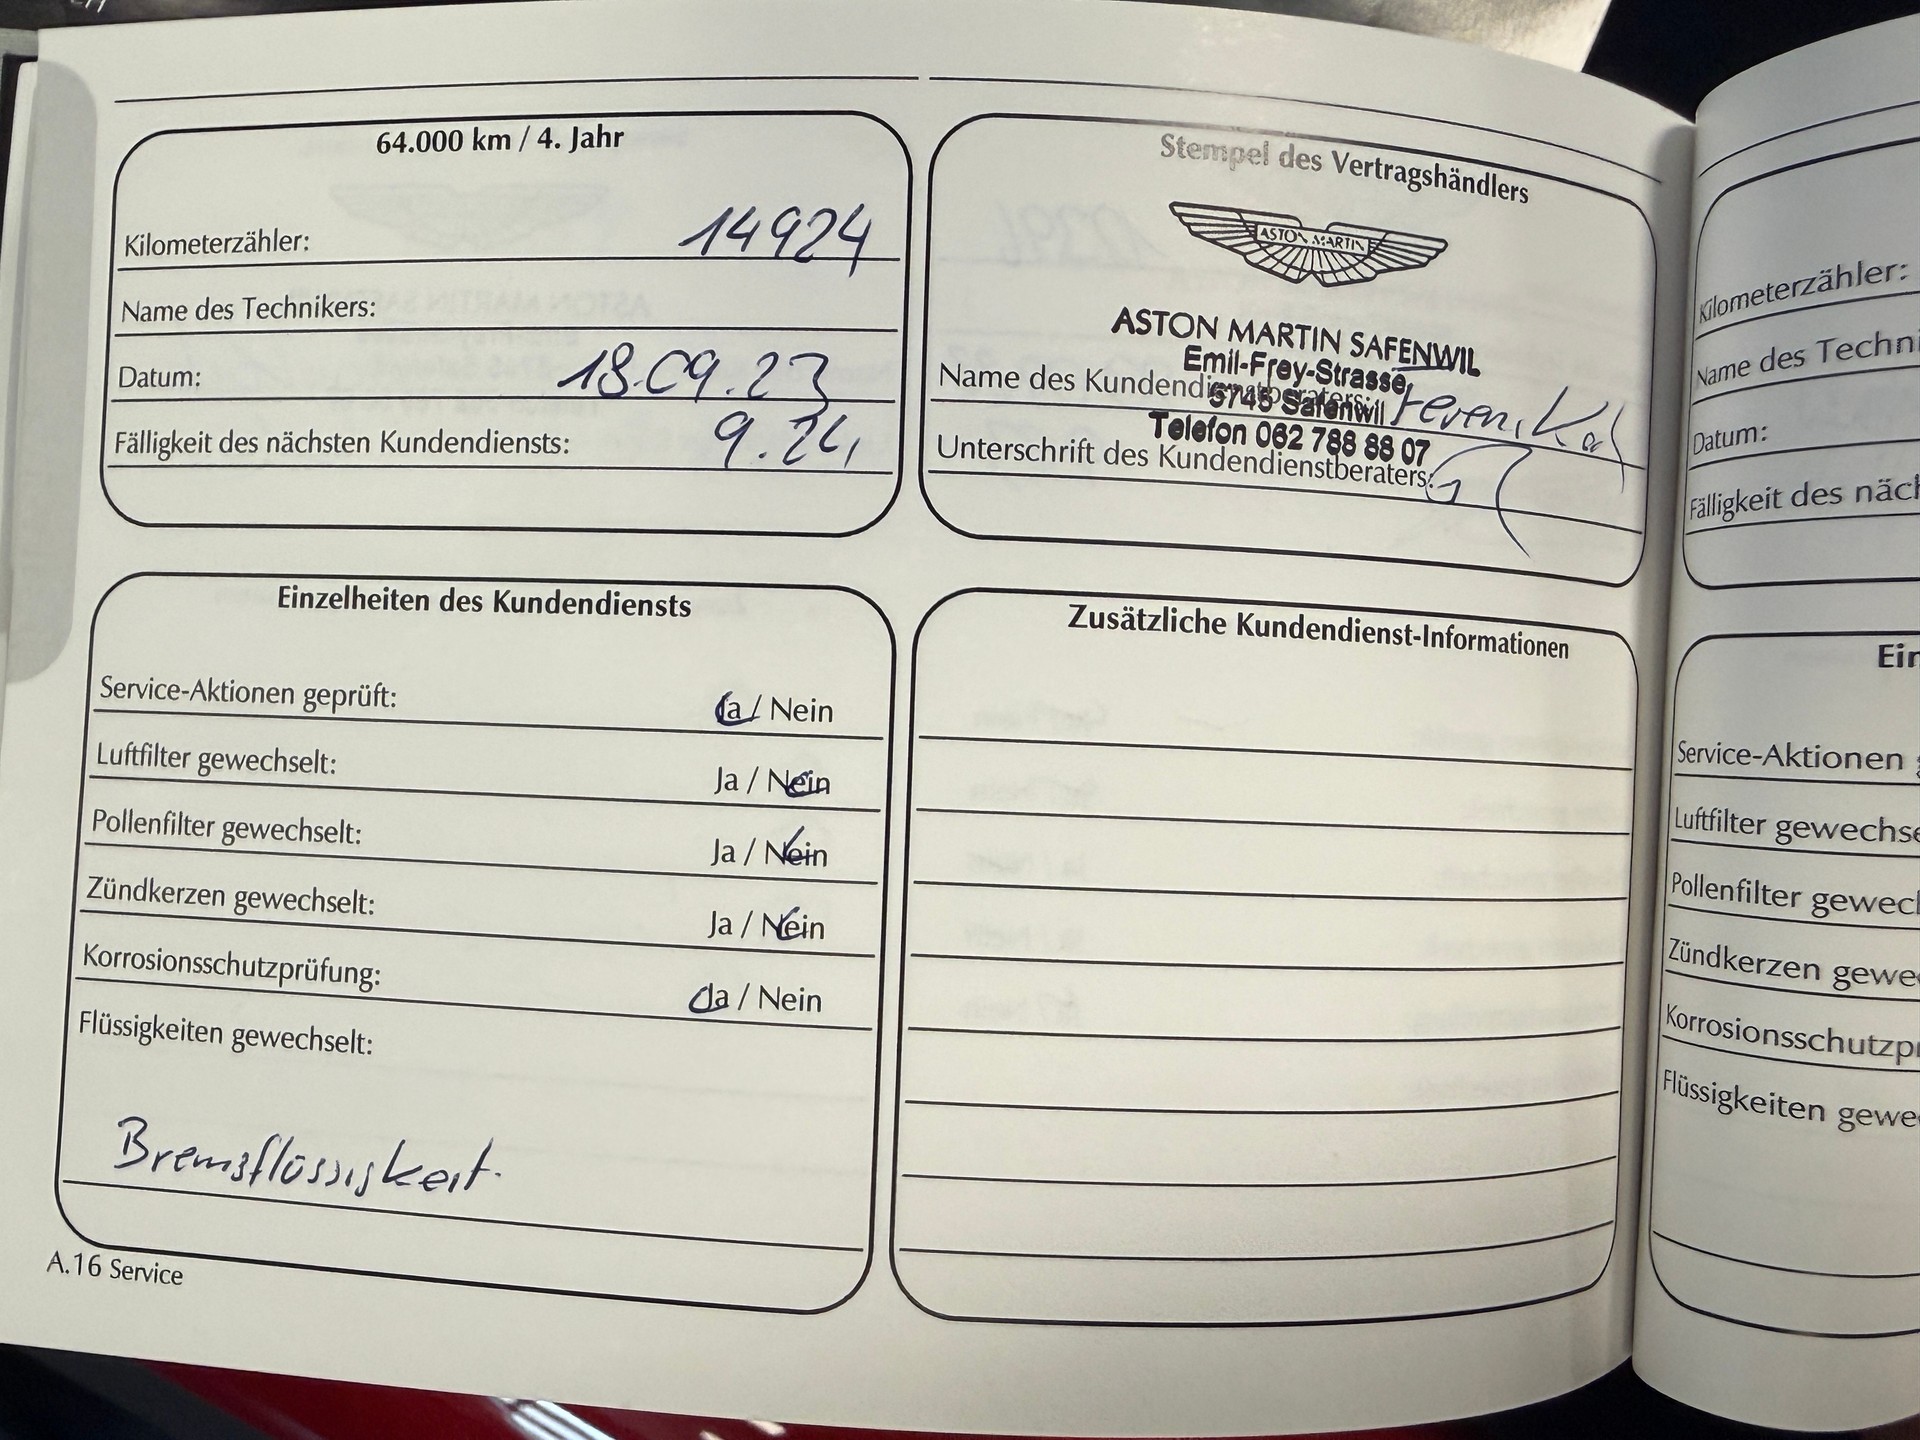 64.000 km / 4. Jahr
Kilometerzähler: 14924
Name des Technikers:
Datum: 18.09.23
Fälligkeit des nächsten Kundendiensts: 9.24
Stempel des Vertragshändlers
ASTON MARTIN
ASTON MARTIN SAFENWIL
Emil-Frey-Strasse
Name des Kundendienstberaters:
5745 Safenwil
Telefon 062 788 88 07
Unterschrift des Kundendienstberaters:
Einzelheiten des Kundendiensts
Service-Aktionen geprüft: Ja / Nein
Luftfilter gewechselt: Ja / Nein
Pollenfilter gewechselt: Ja / Nein
Zündkerzen gewechselt: Ja / Nein
Korrosionsschutzprüfung: Ja / Nein
Flüssigkeiten gewechselt:
Bremsflüssigkeit.
Zusätzliche Kundendienst-Informationen
A.16 Service
Kilometerzähler:
Name des Techni
Datum:
Fälligkeit des näch
Ein
Service-Aktionen g
Luftfilter gewechse
Pollenfilter gewech
Zündkerzen gewe
Korrosionsschutzp
Flüssigkeiten gewe